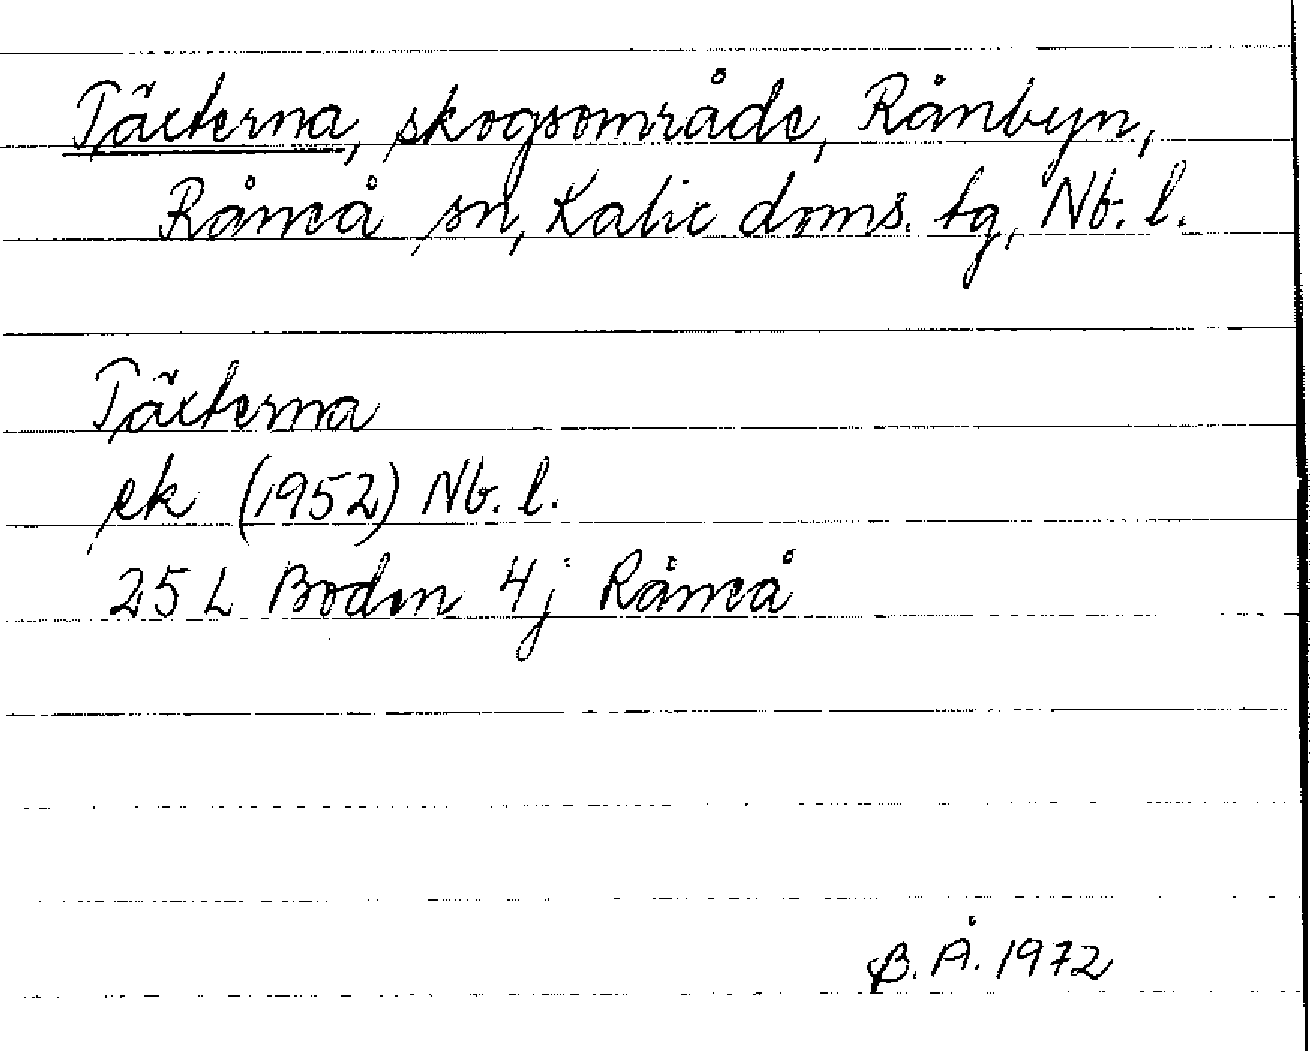 Täxterna, skogsområde, Rånbyn,
Råneå sn, Kalix doms. tg, Nb. l.
Täxterna
ek (1952) Nb. l.
25 L Boden 4 j Råneå
B. Å. 1972